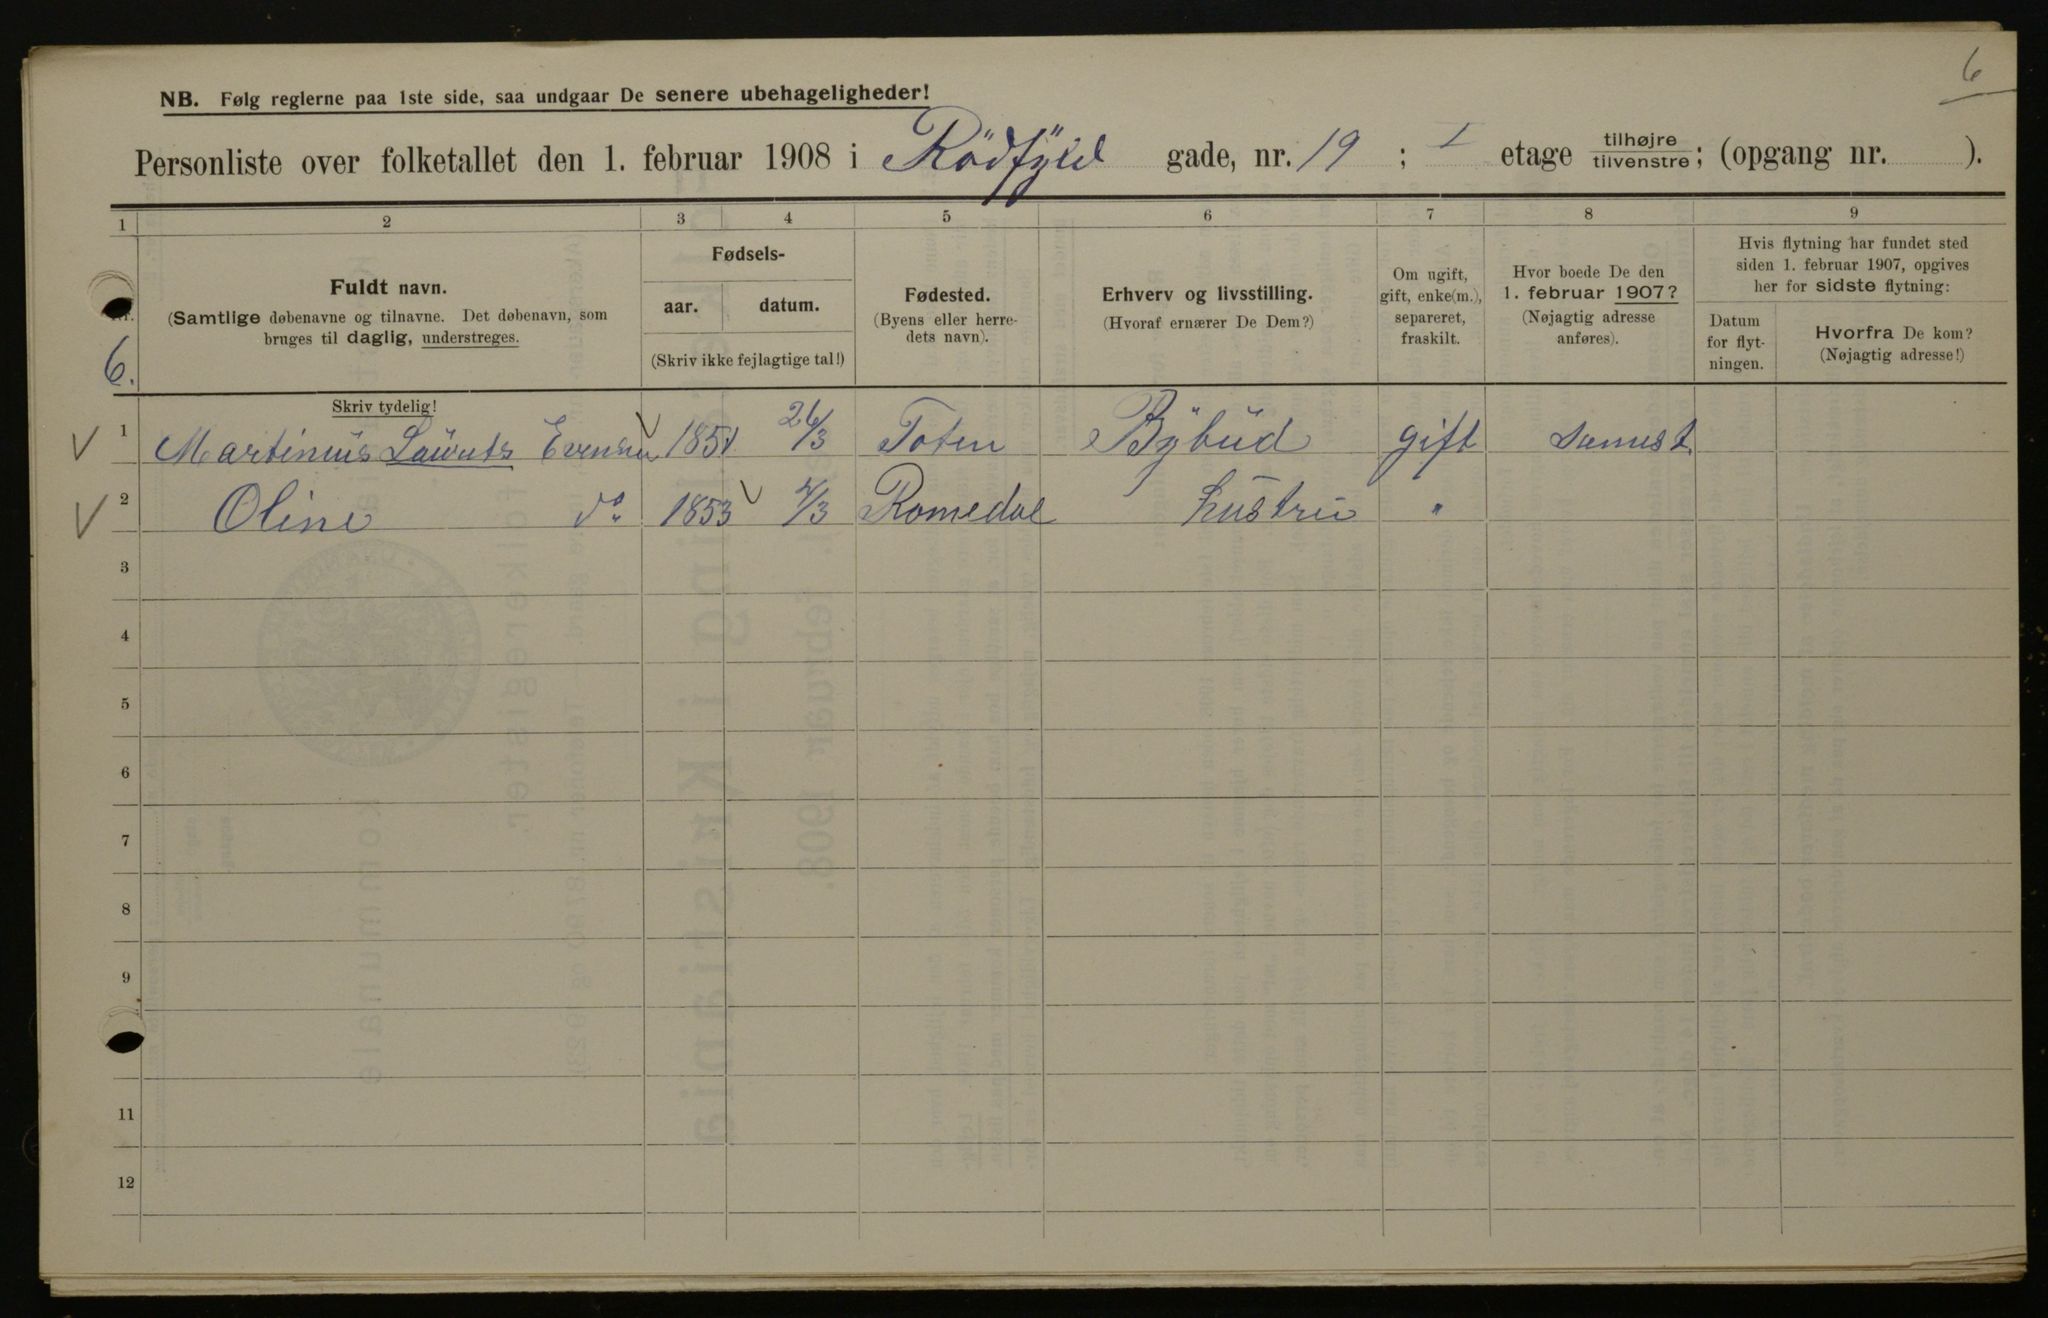 6
NB. Følg reglerne paa 1ste side, saa undgaar De senere ubehageligheder!
Personliste over folketallet den 1. februar 1908 i Rödfyld gade, nr. 19 ; I etage tilhøjre tilvenstre; (opgang nr. ).
1 2 3 4 5 6 7 8 9
Nr. Fuldt navn. (Samtlige døbenavne og tilnavne. Det døbenavn, som bruges til daglig, understreges.
Fødsels- aar. datum. (Skriv ikke fejlagtige tal!)
Fødested. (Byens eller herredets navn).
Erhverv og livsstilling. (Hvoraf ernærer De Dem?)
Om ugift, gift, enke(m.), separeret, fraskilt.
Hvor boede De den 1. februar 1907? (Nøjagtig adresse anføres).
Hvis flytning har fundet sted siden 1. februar 1907, opgives her for sidste flytning:
Datum for flytningen.
Hvorfra De kom? (Nøjagtig adresse!)
6.
Skriv tydelig!
1 Martinius Lauruts Evensen 1851 26/3 Toten Bybud gift
2 Oline do 1853 /3 Romedal Hustru "
3
4
5
6
7
8
9
11
12